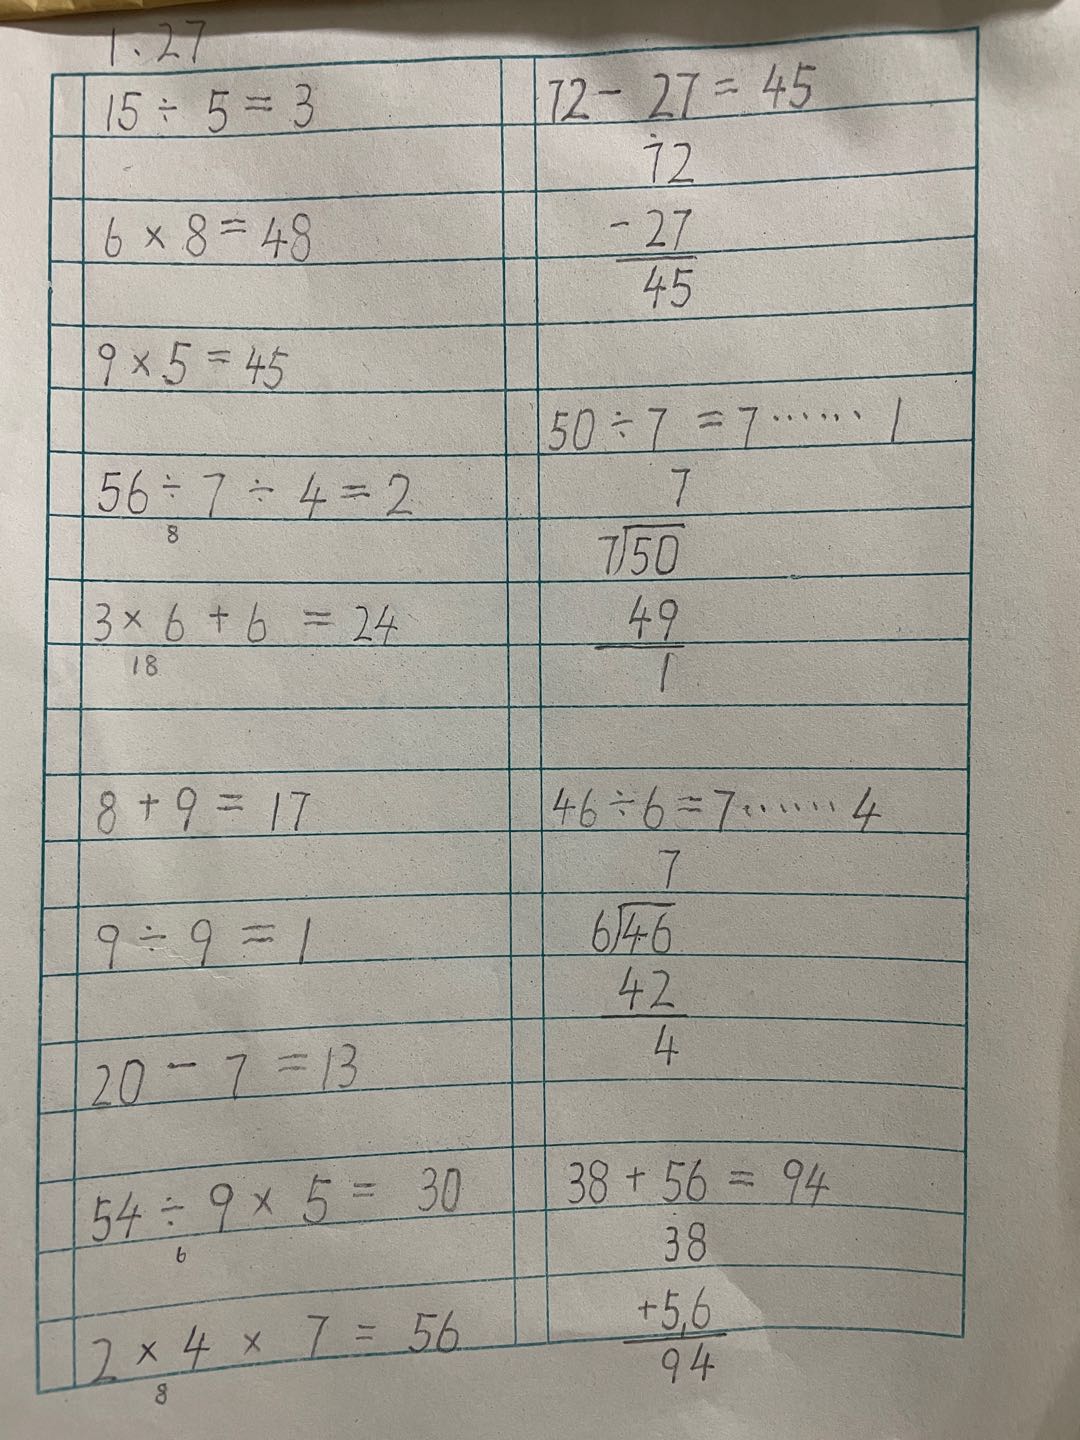 1.27
15÷5=3
6×8=48
9×5=45
56÷7÷4=2
8
3×6+6=24
18
8+9=17
9÷9=1
20-7=13
54÷9×5=30
6
2×4×7=56
8
72-27=45
72
-27
45
50÷7=7……1
7
7)50
49
1
46÷6=7……4
7
6)46
42
4
38+56=94
38
+5,6
94